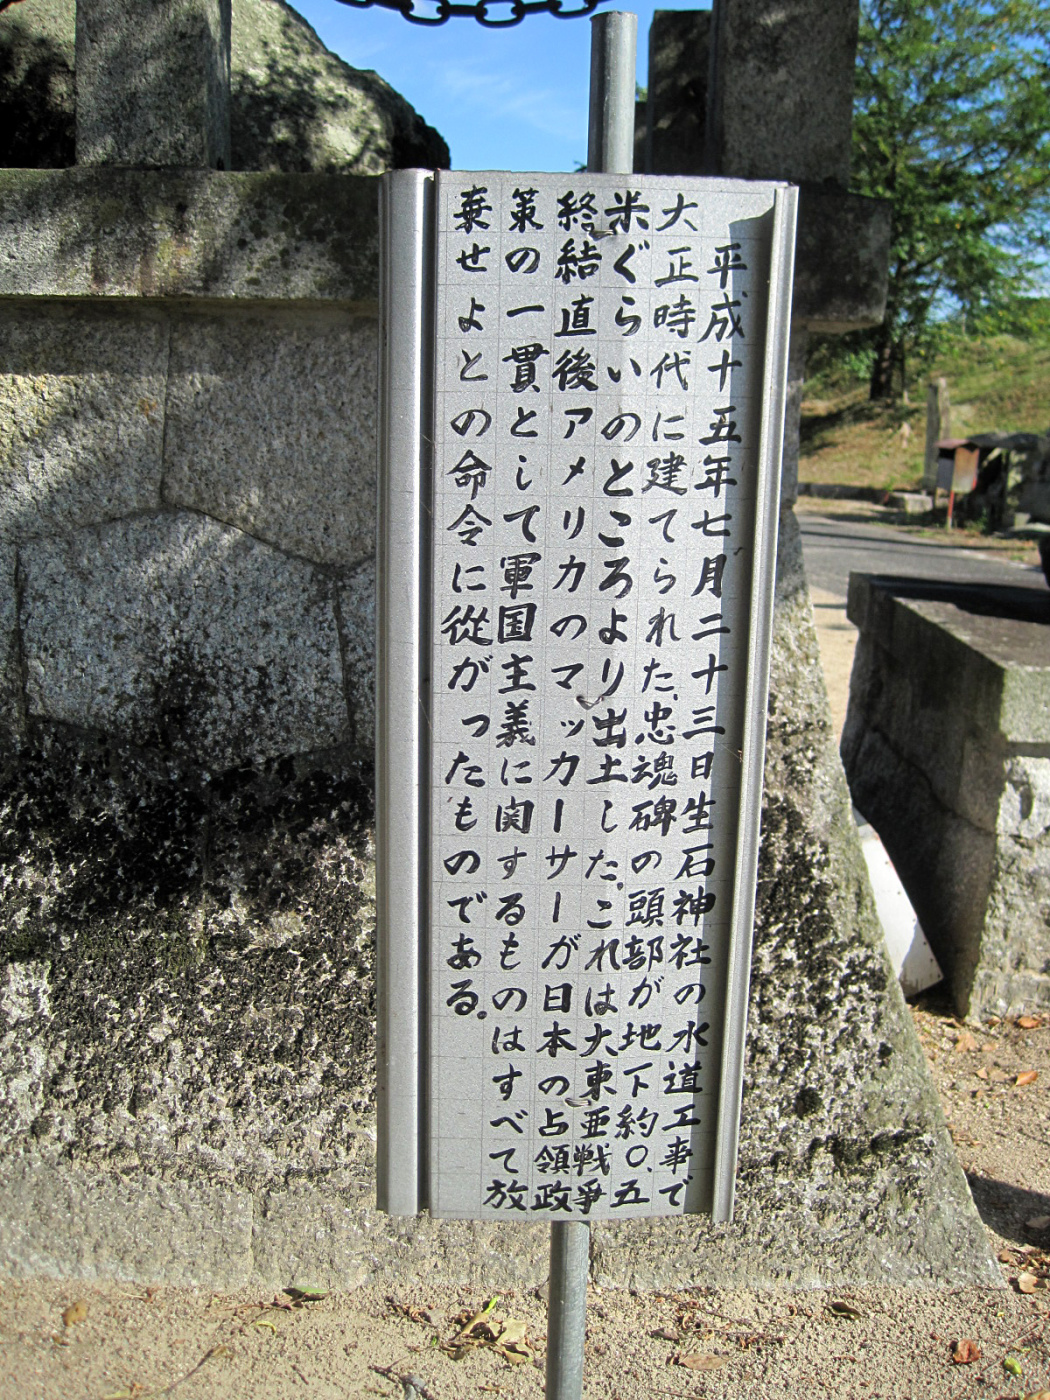 平成十五年七月二十三日生石神社の水道工事で
大正時代に建てられた、忠魂碑の頭部が地下約〇、五
米ぐらいのところより出土した。これは大東亜戦争
終結直後アメリカのマッカーサーが日本の占領政
策の一貫として軍国主義に関するものはすべて放
棄せよとの命令に従がったものである。